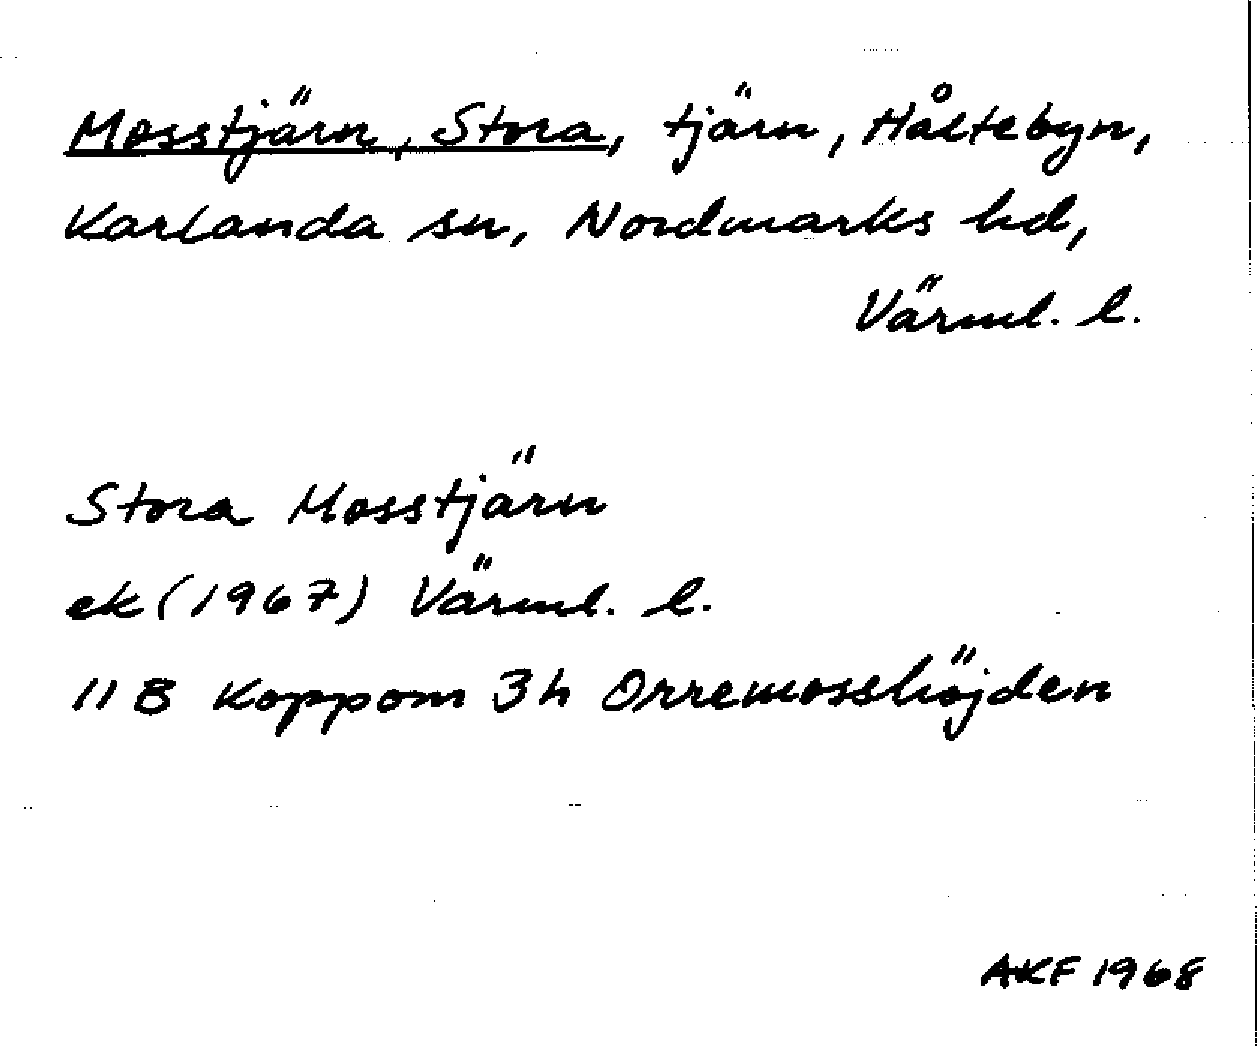 Mosstjärn, Stora, tjärn, Håltebyn,
Karlanda sn, Nordmarks hd,
Värml. l.
Stora Mosstjärn
ek (1967) Värml. l.
11 B Koppom 3 h Orremosshöjden
AKF 1968